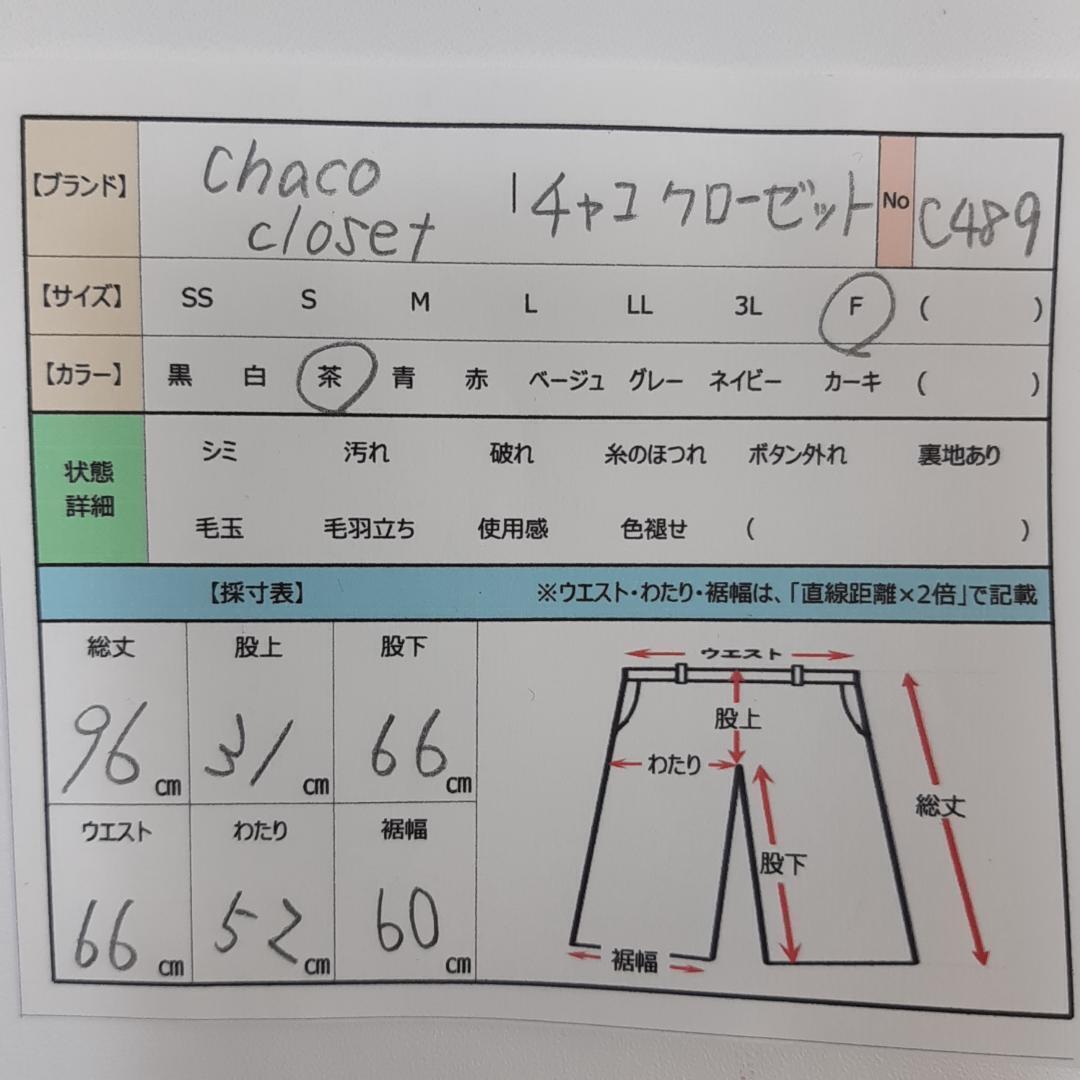 【ブランド】 chaco closet | チャコ クローゼット No C489
【サイズ】 SS S M L LL 3L F ( )
【カラー】 黒 白 茶 青 赤 ベージュ グレー ネイビー カーキ ( )
状態詳細 シミ 汚れ 破れ 糸のほつれ ボタン外れ 裏地あり
毛玉 毛羽立ち 使用感 色褪せ ( )
【採寸表】 ※ウエスト・わたり・裾幅は、「直線距離×2倍」で記載
総丈 股上 股下
96cm 31cm 66cm
ウエスト わたり 裾幅
66cm 52cm 60cm
ウエスト
股上
わたり
総丈
股下
裾幅